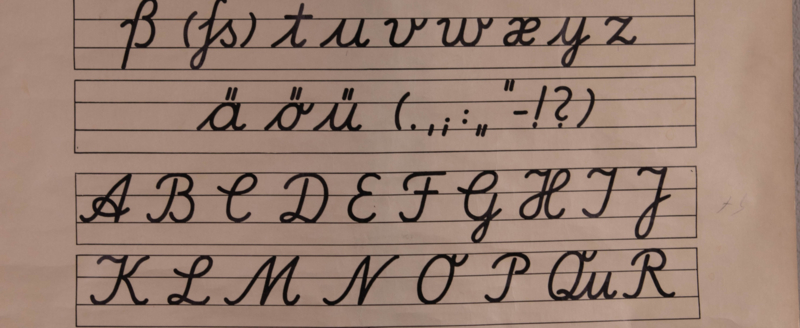 ß (ſs) t u v w x y z
ä ö ü (.,;:„“-!?)
A B C D E F G H I J
K L M N O P Qu R